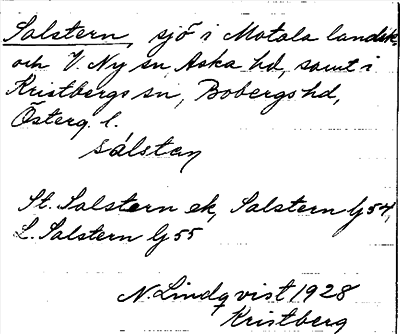 Salstern, sjö i Motala landsk.
och V. Ny sn, Aska hd, samt i
Kristbergs sn, Bobergs hd,
Österg. l.
sálstan
St. Salstern ek, Salstern lj 54,
L. Salstern lj 55
N. Lindqvist 1928
Kristberg